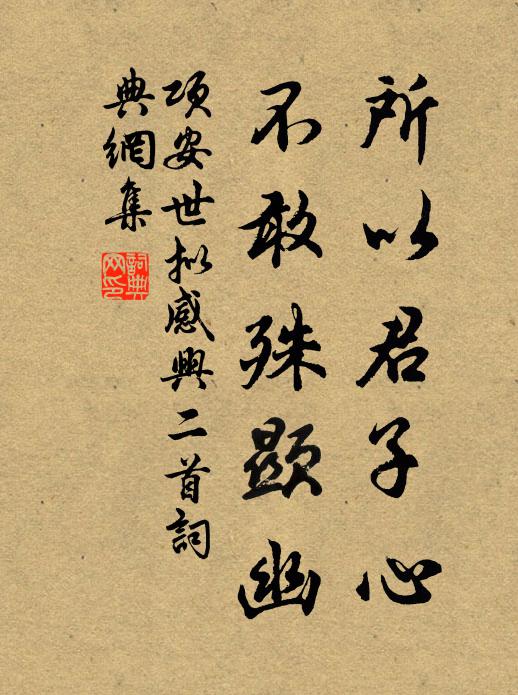 所以君子心
不敢殊顯幽
項安世拟感興二首詞
典網集
詞典網印